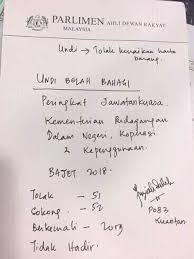 PARLIMEN AHLI DEWAN RAKYAT
MALAYSIA
Undi → Tolak kenaikan harga
barang.
UNDI BELAH BAHAGI
Peringkat Jawatankuasa
Kementerian Perdagangan
Dalam Negeri, Koperasi
& Kepenggunaan.
BAJET 2018.
Tolak - 51
Sokong - 52
Berkecuali -
Tidak Hadir.
P083
Kuantan